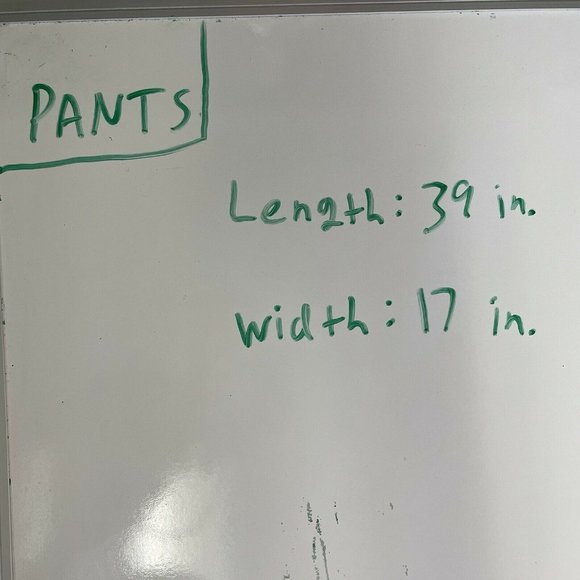 PANTS
Length: 39 in.
width: 17 in.